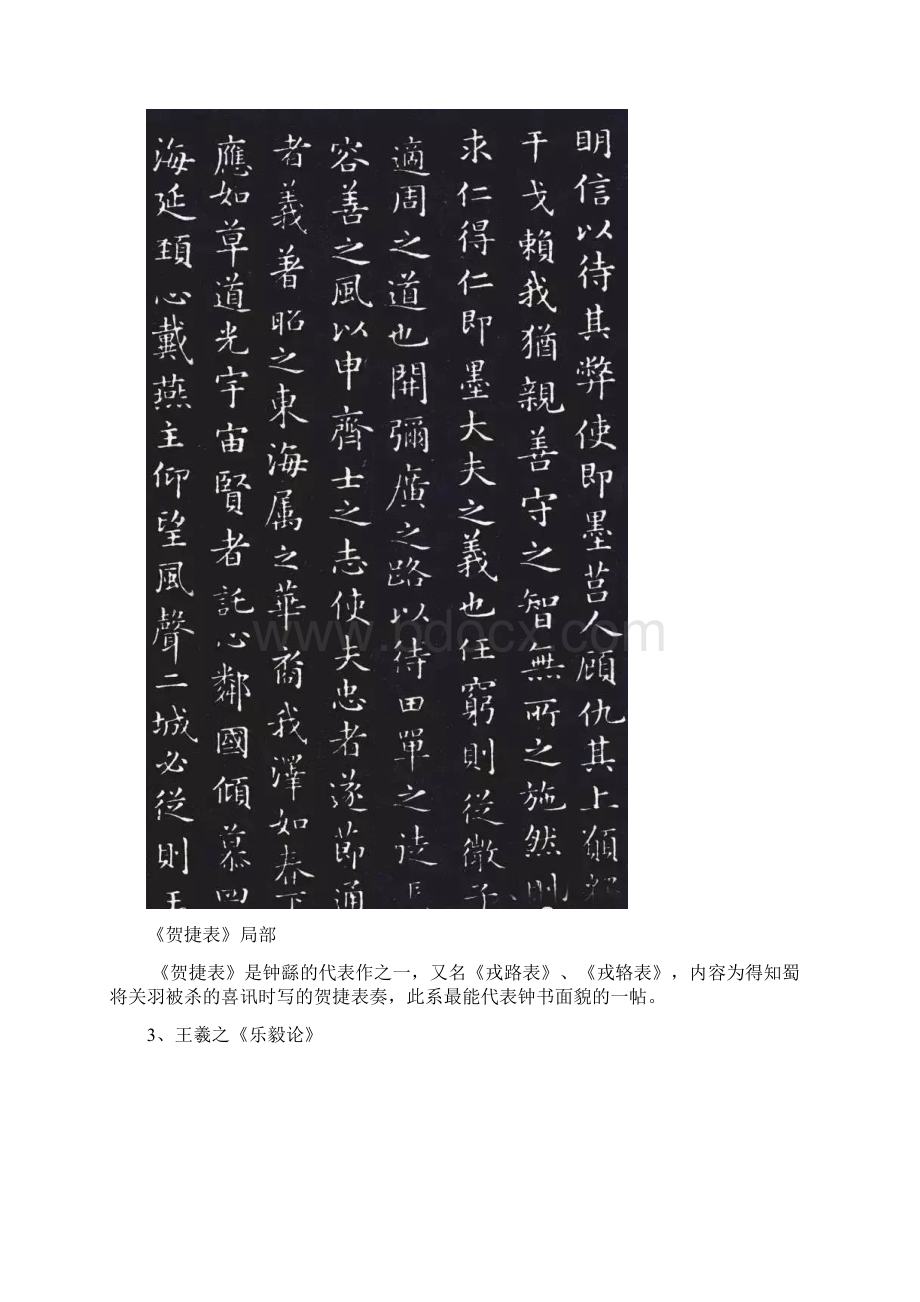 明信以待其弊使即墨莒人顧仇其上願釋
干戈賴我猶親善守之智無所之施然則
求仁得仁即墨大夫之義也任窮則從微子
適周之道也開彌廣之路以待田單之徒長
容善之風以申齊士之志使夫忠者遂節通
者義著昭之東海属之華裔我澤如春下
應如草道光宇宙賢者託心鄰國傾慕四
海延頚心戴燕主仰望風聲二城必從則王
www.bdocx.com
《贺捷表》局部
《贺捷表》是钟繇的代表作之一，又名《戎路表》、《戎辂表》，内容为得知蜀
将关羽被杀的喜讯时写的贺捷表奏，此系最能代表钟书面貌的一帖。
3、王羲之《乐毅论》